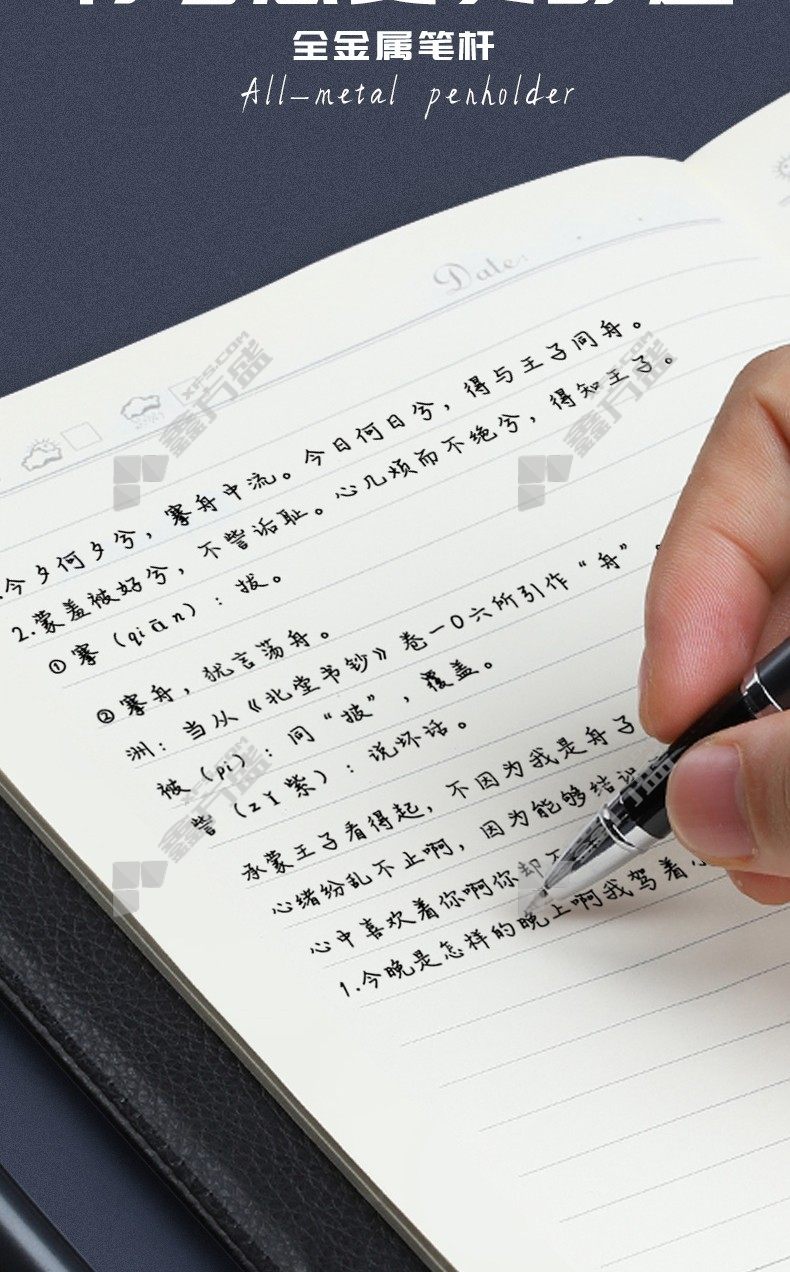 全金属笔杆
All-metal penholder
Date:
今夕何夕兮，搴舟中流。今日何日兮，得与王子同舟。
2.蒙羞被好兮，不訾诟耻。心几烦而不绝兮，得知王子。
①搴（qiān）：拔。
②搴舟，犹言荡舟。
洲：当从《北堂书钞》卷一0六所引作“舟”。
被（pi）：同“披”，覆盖。
訾（zǐ紫）：说坏话。
承蒙王子看得起，不因为我是舟子
心绪纷乱不止啊，因为能够结识
心中喜欢着你啊你却不
1.今晚是怎样的晚上啊我驾着小
XFS.COM
鑫方盛
XFS.COM
鑫方盛
XFS.COM
鑫方盛